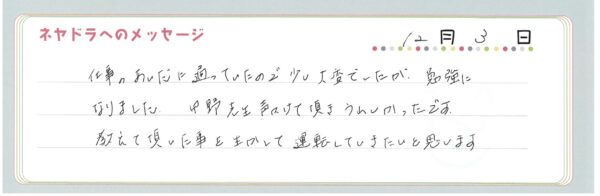 ネヤドラへのメッセージ
12月3日
仕事のあいだに通っていたので少し大変でしたが、勉強に
なりました。中野先生声かけて頂きうれしかったです。
教えて頂いた事を生かして運転していきたいと思います